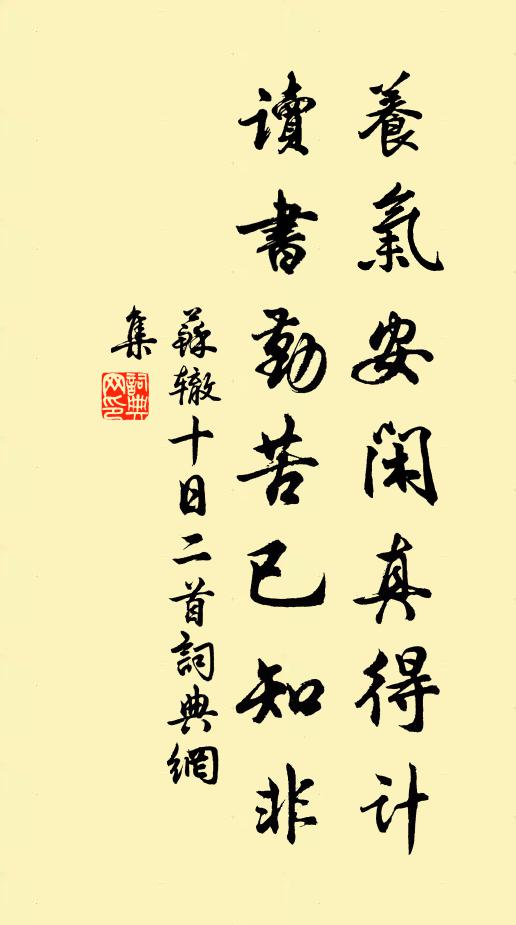 養氣安閑真得计
读書勤苦已知非
蘇辙十日二首詞典網
集
詞典
网印